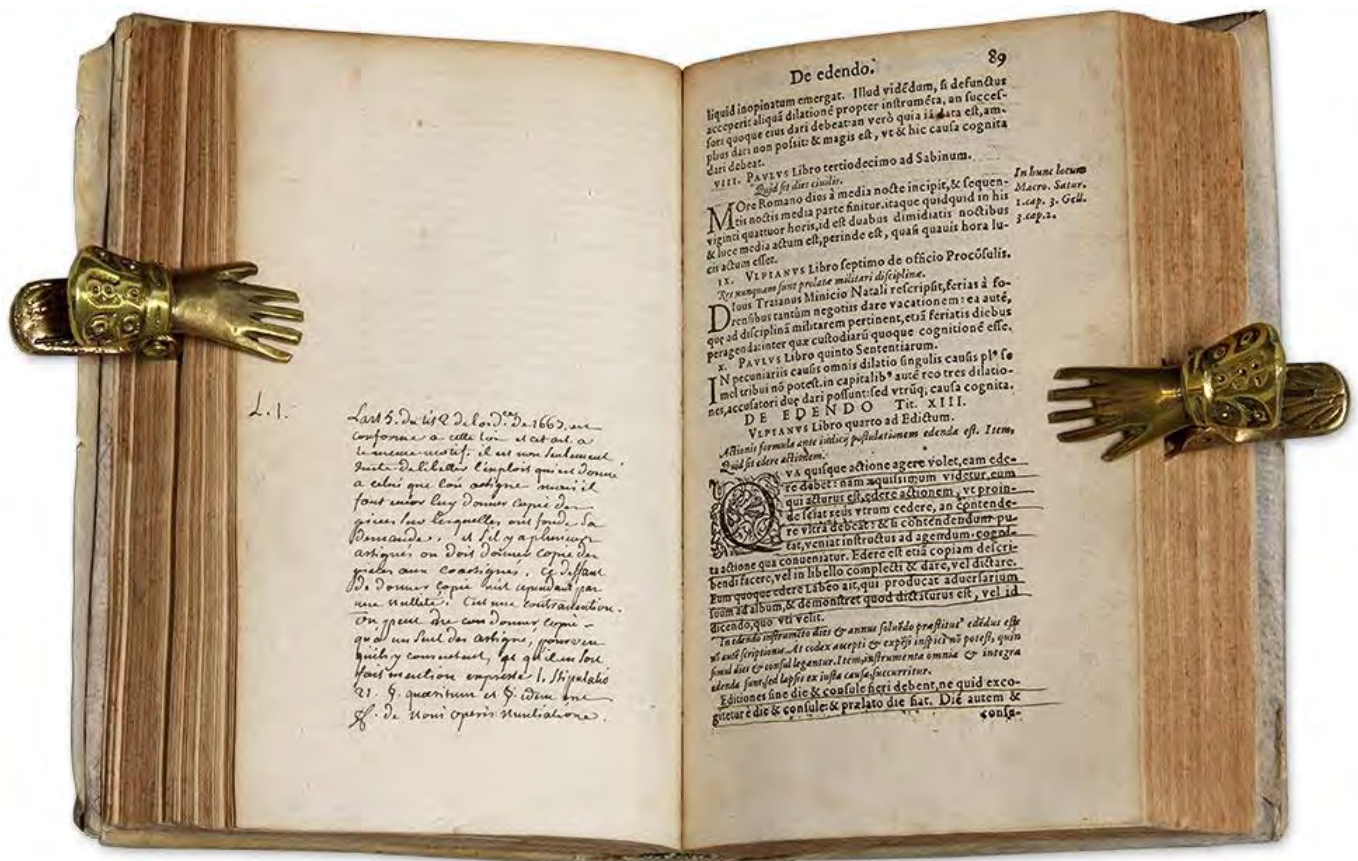 L. 1.
L'art 5. du tit 2 de l'ord.ce de 1667. est
conforme a cette loi et cet art. a
le meme motif. il est non seulement
de libeller l'exploit qui est donné
a celui que l'on assigne mais il
faut encor luy donner copie des
pieces sur lesquelles est fondé la
Demande. et s'il y a plusieurs
assignés on doit donner copie des
pieces aux coassignés. ce deffaut
de donner copie n'est cependant pas
une nullité. C'est une contravention.
On peut donner copie
qu'a un seul des assignés, pourveu
quils y consentent, et qu'il en soit
fait mention expresse l. Stipulatio
21. §. quæsitum et §. idem
ff. de novi operis nuntiatione.
De edendo. 89
liquid inopinatum emergat. Illud vidēdum, ſi defunctus
acceperit aliquā dilationē propter inſtrumēta, an ſucceſ-
ſori quoque eius dari debeat: an verò quia iā data eſt, am-
plius dari non poſsit: & magis eſt, vt & hic cauſa cognita
dari debeat.
VIII. PAVLVS Libro tertiodecimo ad Sabinum.
Quid ſit dies ciuilis.
MOre Romano dies à media nocte incipit, & ſequen-
tis noctis media parte finitur. itaque quidquid in his
viginti quattuor horis, id eſt duabus dimidiatis noctibus
& luce media actum eſt, perinde eſt, quaſi quauis hora lu-
cis actum eſſet.
In hunc locum
Macro. Satur.
1. cap. 3. Gell.
3. cap. 2.
IX. VLPIANVS Libro ſeptimo de officio Procōſulis.
Res nunquam ſunt prolatæ militari diſciplinæ.
DIuus Traianus Minicio Natali reſcripſit, ferias à fo-
renſibus tantùm negotiis dare vacationem: ea autē,
quę ad diſciplinā militarem pertinent, etiā feriatis diebus
peragenda: inter quæ cuſtodiarū quoque cognitionē eſſe.
X. PAVLVS Libro quinto Sententiarum.
IN pecuniariis cauſis omnis dilatio ſingulis cauſis plꝰ ſe
mel tribui nō poteſt. in capitalibꝰ autē reo tres dilatio-
nes, accuſatori duę dari poſſunt: ſed vtrūq; cauſa cognita.
DE EDENDO Tit. XIII.
VLPIANVS Libro quarto ad Edictum.
Actionis formula ante iudicij poſtulationem edenda eſt. Item,
Quid ſit edere actionem.
QVA quiſque actione agere volet, eam ede-
re debet: nam æquiſsimum videtur, eum
qui acturus eſt, edere actionem, vt proin-
de ſciat reus vtrum cedere, an contende-
re vltrà debeat: & ſi contendendum pu-
tat, veniat inſtructus ad agendum. cogni-
ta actione qua conueniatur. Edere eſt etiā copiam deſcri-
bendi facere, vel in libello complecti & dare, vel dictare.
Eum quoque edere Labeo ait, qui producat aduerſarium
ſuum ad album, & demonſtret quod dictaturus eſt, vel id
dicendo, quo vti velit.
In edendo inſtrumēto dies & annus ſoluēdo præſtitutꝰ edēdus eſt:
nō autē ſcriptionis. At codex accepti & expēſi inſpici nō poteſt, quin
ſimul dies & conſul legantur. Item, inſtrumenta omnia & integra
edenda ſunt, ſed lapſis ex iuſta cauſa, ſuccurritur.
Editiones ſine die & conſule fieri debent, ne quid exco-
gitetur è die & conſule: & prælato die fiat. Diē autem &
conſu-